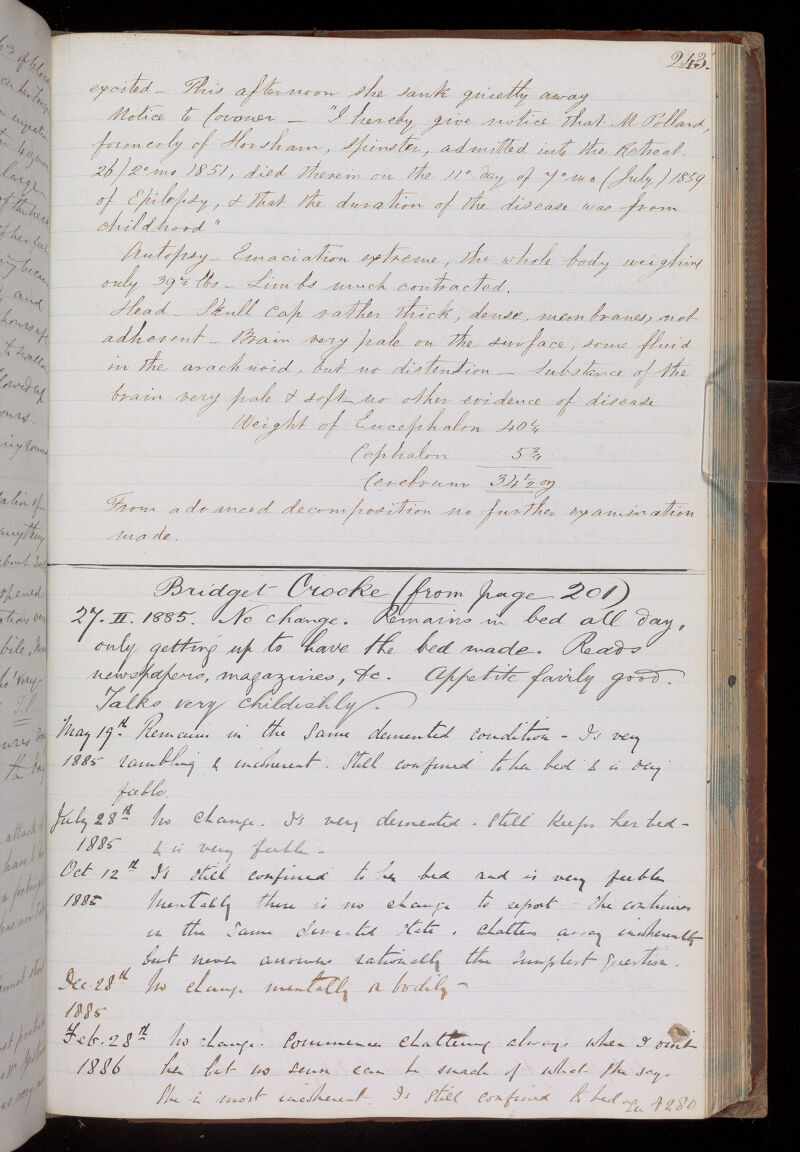 243.
excited – This afternoon she sank quietly away
Notice to Coroner – "I hereby give notice that M Pollard,
formerly of Horsham, Spinster, admitted into the Retreat
26/2º mo 1851, died therein on the 11º day of 7º mo (July) 1859
of Epilepsy, & that the duration of the disease was from
childhood"
Autopsy – Emaciation extreme, the whole body weighing
only 39¼ lbs – Limbs much contracted.
Head – Skull cap rather thick, dense, membranes, not
adherent – Brain very pale on the surface, some fluid
in the arachnoid, but no distention – Substance of the
brain very pale & soft no other evidence of disease
Weight of Encephalon 40¼
Cephalon 5¾
Cerebrum 34½ oz
From advanced decomposition no further examination
made.
Bridget Crooke (from page 201)
27. II. 1885. No change. Remains in bed all day,
only getting up to have the bed made. Reads
newspapers, magazines, &c. Appetite fairly good.
Talks very childishly.
May 19th Remains in the same demented condition – Is very
1885 rambling & incoherent. Still confined to her bed & is very
feeble.
July 28th No change. Is very demented. Still keeps her bed –
1885 & is very feeble –
Oct. 12th Is still confined to her bed and is very feeble
1885 Mentally there is no change to report – She continues
in the same demented state. Chatters away incoherently
but never answers rationally the simplest question.
Dec. 28th No change mentally or bodily –
1885
Feb. 28th No change. Commences chattering always when I visit
1886 her but no sense can be made of what she says.
She is most incoherent. Is still confined to bed – 280